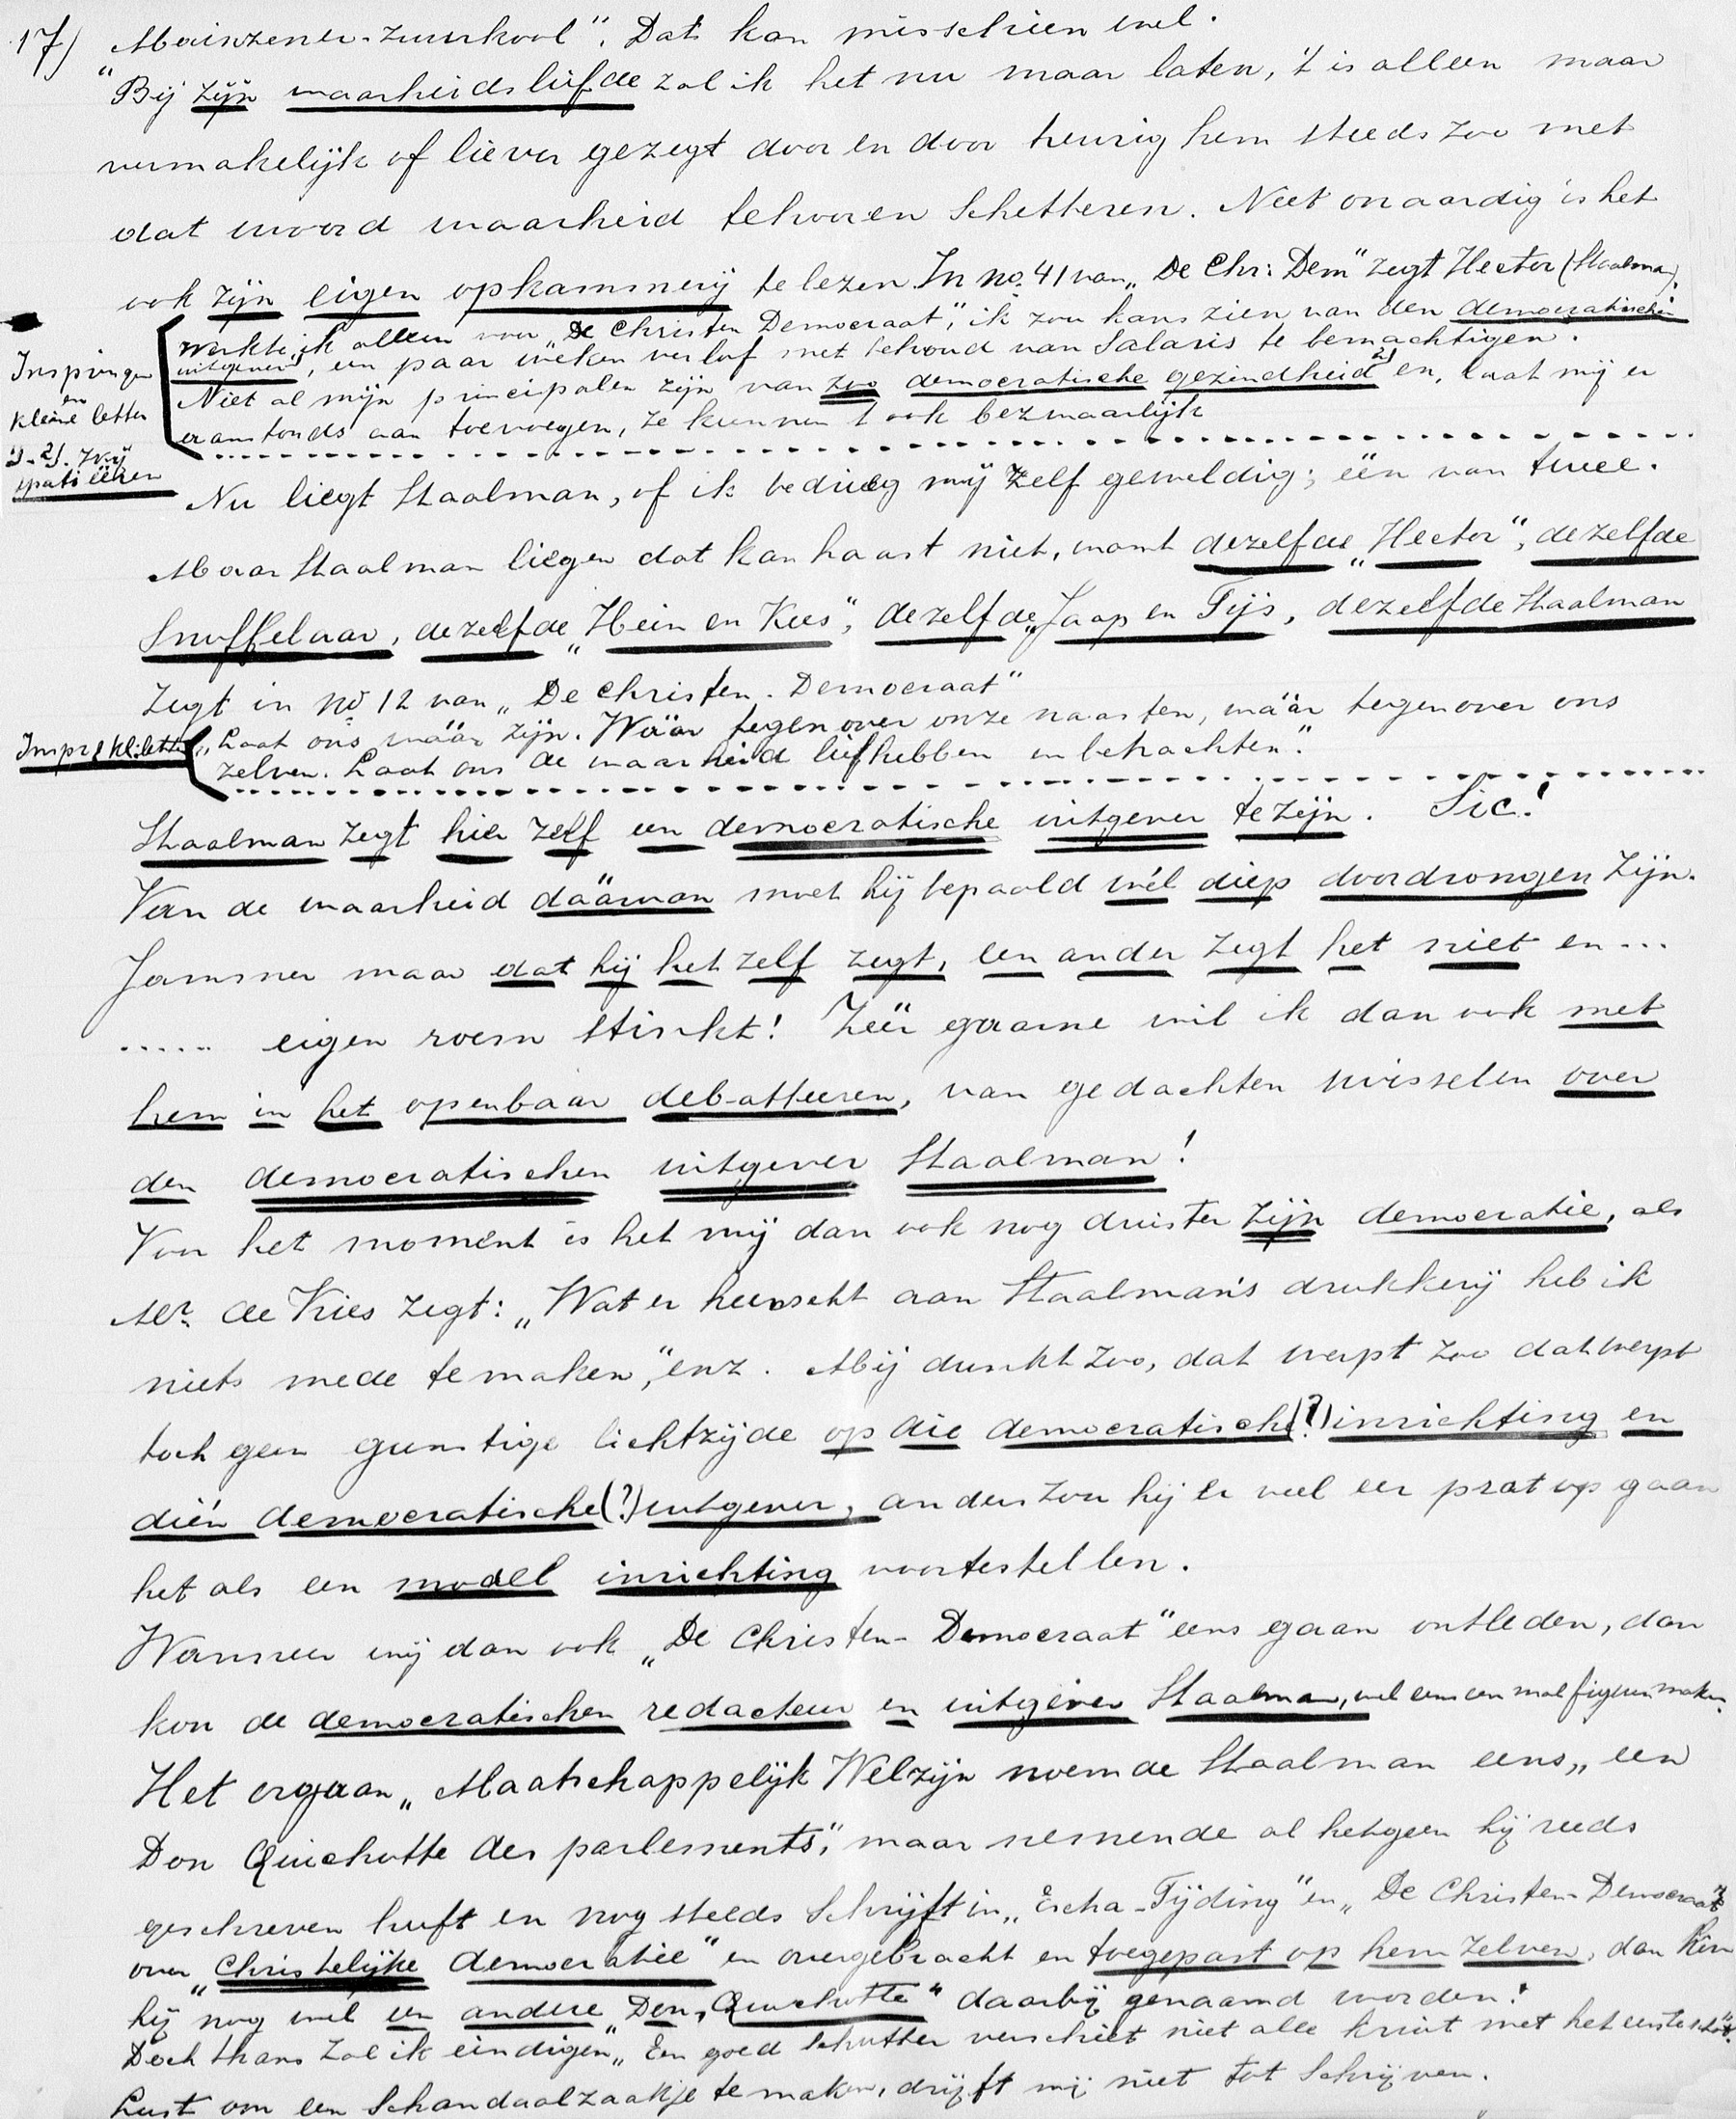 17) Mainzener-zuurkool". Dat kan misschien wel.
"Bij zijn waarheidsliefde zal ik het nu maar laten, 't is alleen maar
vermakelijk of liever gezegt door en door treurig hem steeds zoo met
dat woord waarheid tehooren schetteren. Niet onaardig is het
ook zijn eigen opkammerij te lezen. In no. 41 van „De Chr: Dem" zegt Hector (Staalman).
Werkte ik alleen voor „De Christen Democraat", ik zou kans zien van den democratischen
uitgever, een paar weken verlof met behoud van Salaris te bemachtigen.
Niet al mijn principalen zijn van zoo democratische gezindheid 2) en, laat mij er
eraanstonds aan toevoegen, ze kunnen 't ook bezwaarlijk
Inspringen
en
kleine letter
1)-2). Wij
spatiëeren
Nu liegt Staalman, of ik bedrieg mij zelf geweldig; één van twee.
Maar Staalman liegen dat kan haast niet, want dezelfde „Hector", dezelfde
Snuffelaar, dezelfde „Hein en Kees", dezelfde „Jaap en Tijs, dezelfde Staalman
zegt in no 12 van „De Christen-Democraat"
Inspr & kl: letter
„Laat ons wäär zijn. Wäär tegenover onze naasten, wäär tegenover ons
zelven. Laat ons de waarheid liefhebben en betrachten".
Staalman zegt hier zelf een democratische uitgever te zijn. Sic!
Van de waarheid däärvan moet hij bepaald wél diep doordrongen zijn.
Jammer maar dat hij het zelf zegt, een ander zegt het niet en ...
..... eigen roem stinkt! Zéér gaarne wil ik dan ook met
hem in het openbaar debatteeren, van gedachten wisselen over
den democratischen uitgever Staalman!
Voor het moment is het mij dan ook nog duister zijn democratie, als
Mr. de Vries zegt: „Wat er heerscht aan Staalman's drukkerij heb ik
niets mede te maken," enz. Mij dunkt zoo, dat werpt zoo dat werpt
toch geen gunstige lichtzijde op die democratische (?) inrichting en
dién democratische (?) uitgever, anders zou hij er veel eer prat op gaan
het als een model inrichting voortestellen.
Wanneer wij dan ook „De Christen-Democraat" eens gaan ontleden, dan
kon de democratischen redacteur en uitgever Staalman, wel eens een mal figuur maken.
Het orgaan „Maatschappelijk Welzijn noemde Staalman eens „een
Don Quichotte des parlements", maar nemende al hetgeen hij reeds
geschreven heeft en nog steeds schrijft in „Escha-Tijding" en „De Christen-Democraat"
over „Christelijke democratie" en overgebracht en toegepast op hem zelven, dan kon
hij nog wel een andere „Don Quichotte" daarbij genaamd worden!
Doch thans zal ik eindigen „Een goed schutter verschiet niet alle kruit met het eerste schot".
Lust om een Schandaalzaakje te maken, drijft mij niet tot schrijven.